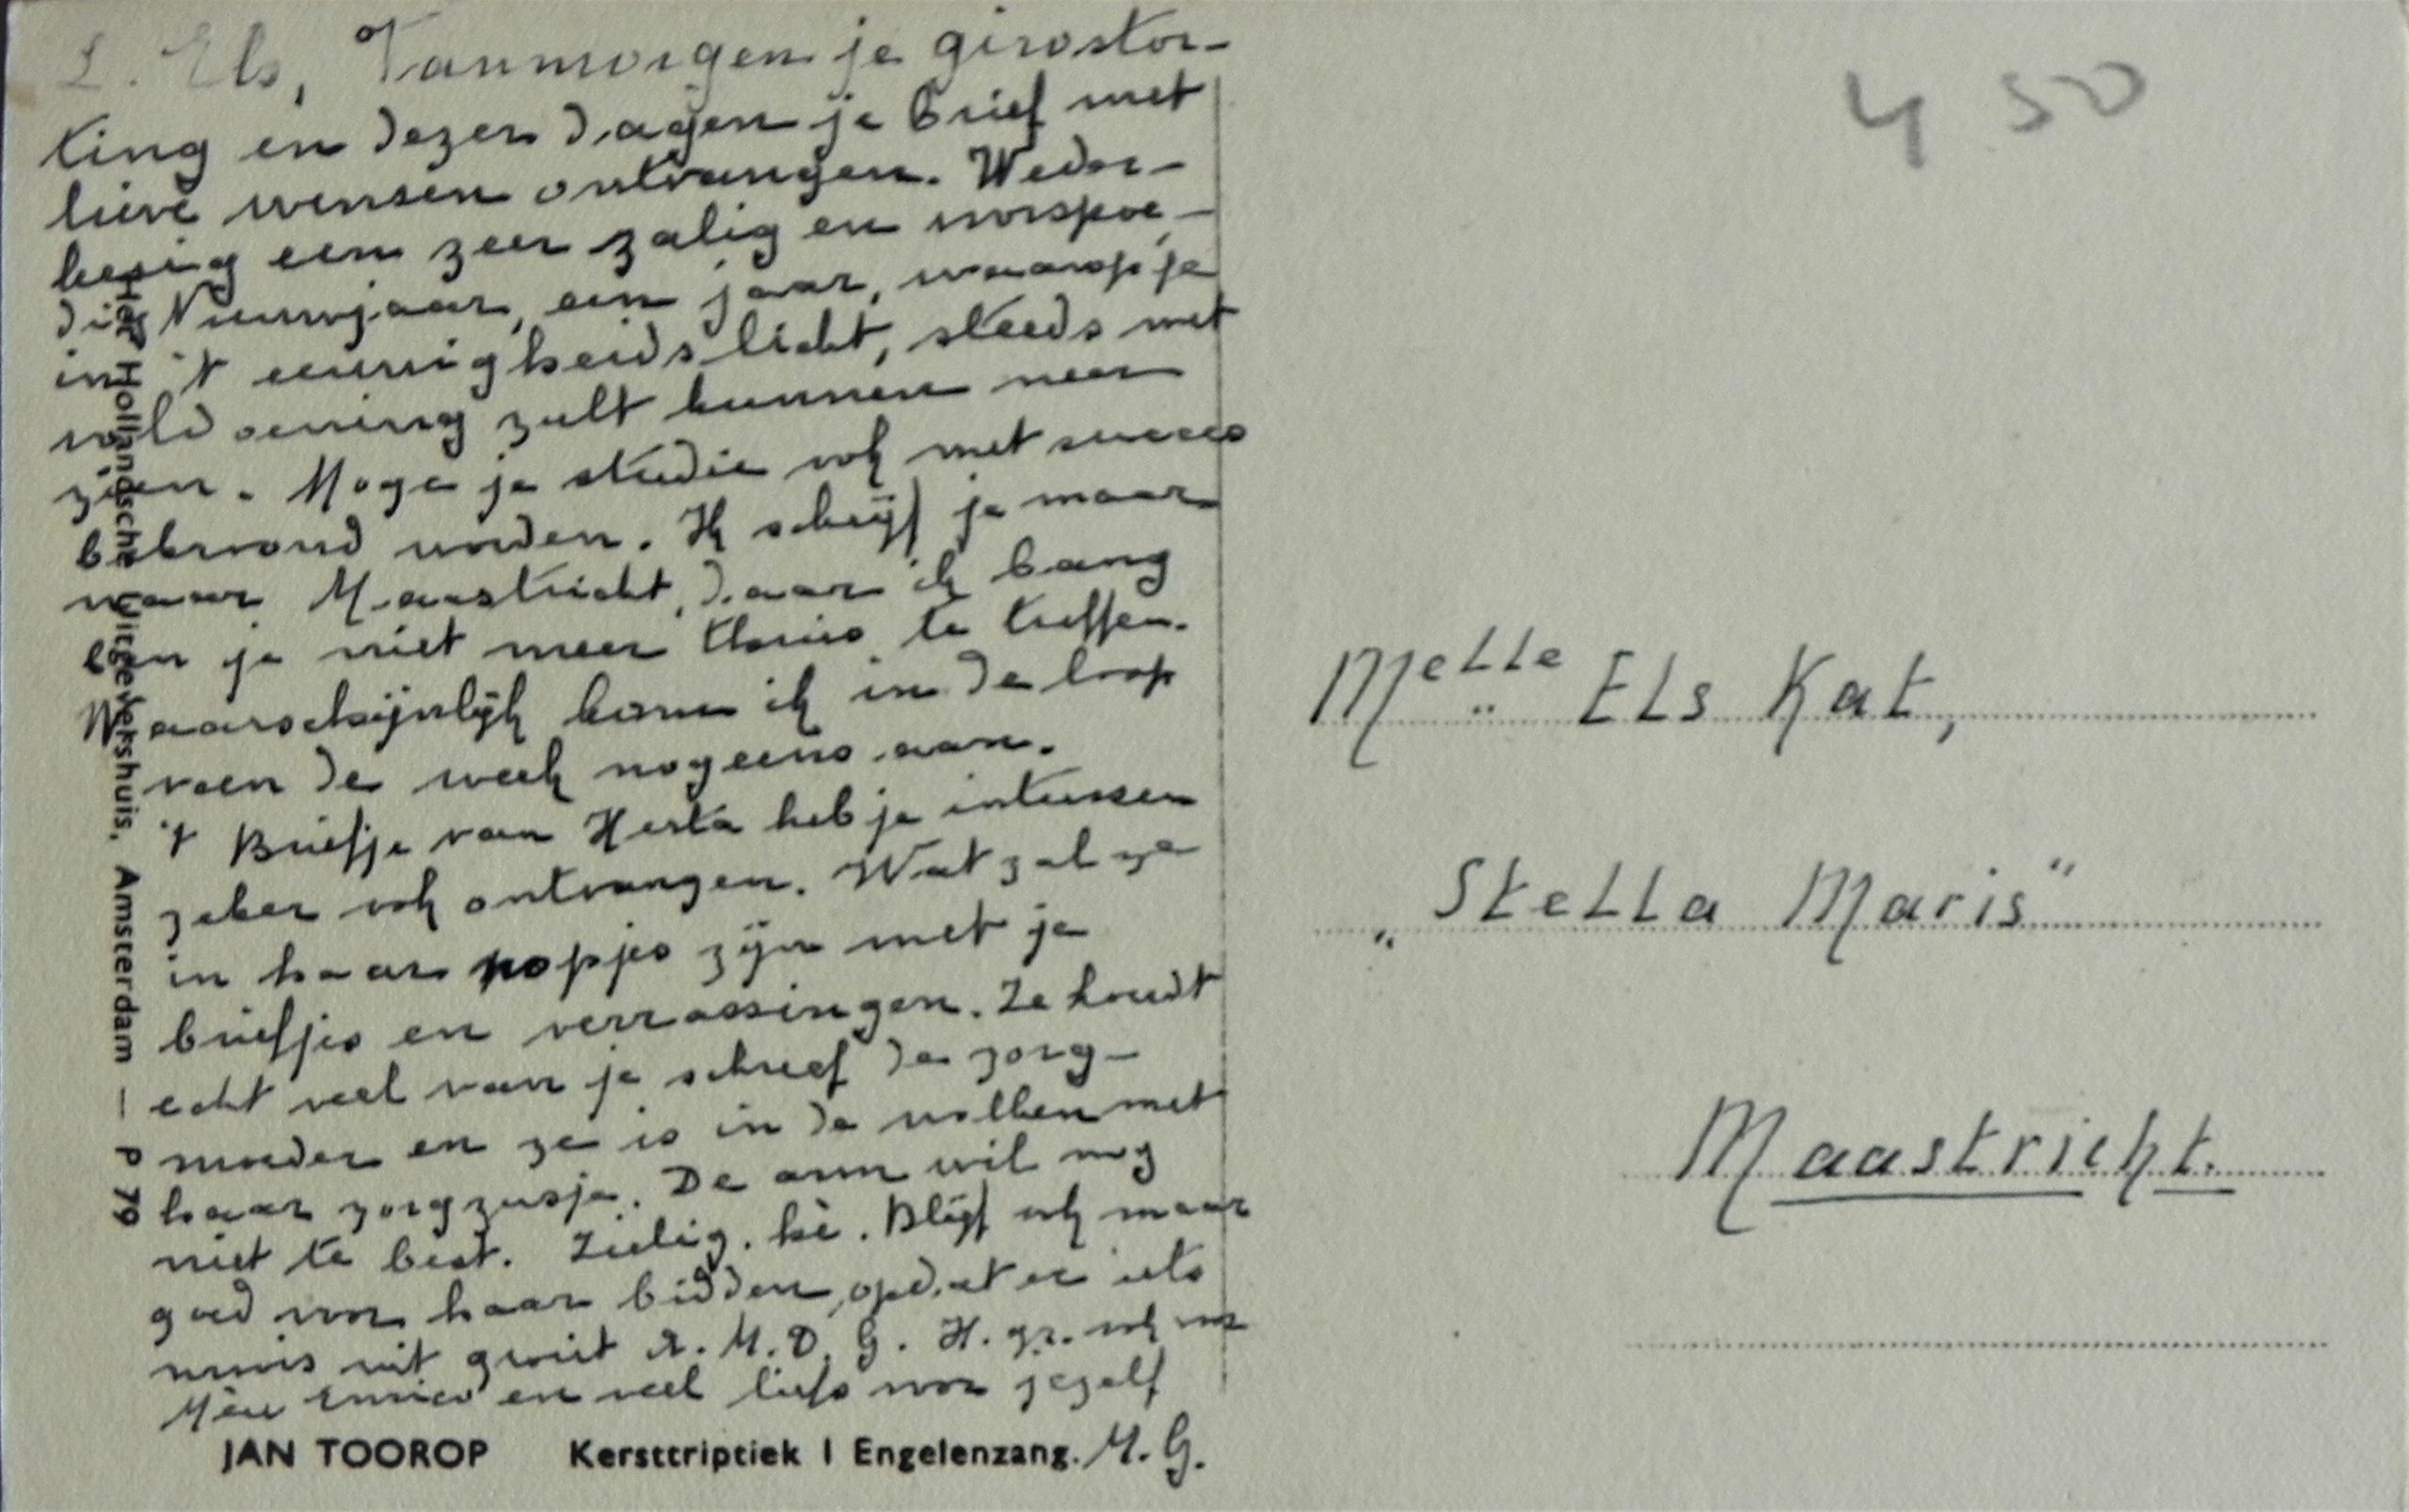 L. Els, Vanmorgen je girostor-
ting en dezer dagen je brief met
lieve wensen ontvangen. Weder-
kerig een zeer zalig en voorspoe-
dig Nieuwjaar, een jaar, waarop je
in 't eeuwigheidslicht, steeds met
voldoening zult kunnen neer
zien. Moge je studie ook met succes
bekroond worden. Ik schrijf je maar
naar Maastricht, daar ik bang
ben je niet meer thuis te treffen.
Waarschijnlijk kom ik in de loop
van de week nog eens aan.
't Briefje van Herta heb je intussen
zeker ook ontvangen. Wat zal ze
in haar nopjes zijn met je
briefjes en verrassingen. Ze houdt
echt veel van je schreef de zorg-
moeder en ze is in de wolken met
haar zorgzusje. De arm wil nog
niet te best. Zielig, hè. Blijf ook maar
goed voor haar bidden, opdat er iets
moois uit groeit A. M. D. G. H. gr. ook voor
en veel liefs voor jezelf
M. G.
JAN TOOROP Kersttriptiek I Engelenzang.
Het Hollandsche Uitgevershuis, Amsterdam — P 79
4 50
Melle Els Kat,
„Stella Maris"
Maastricht.